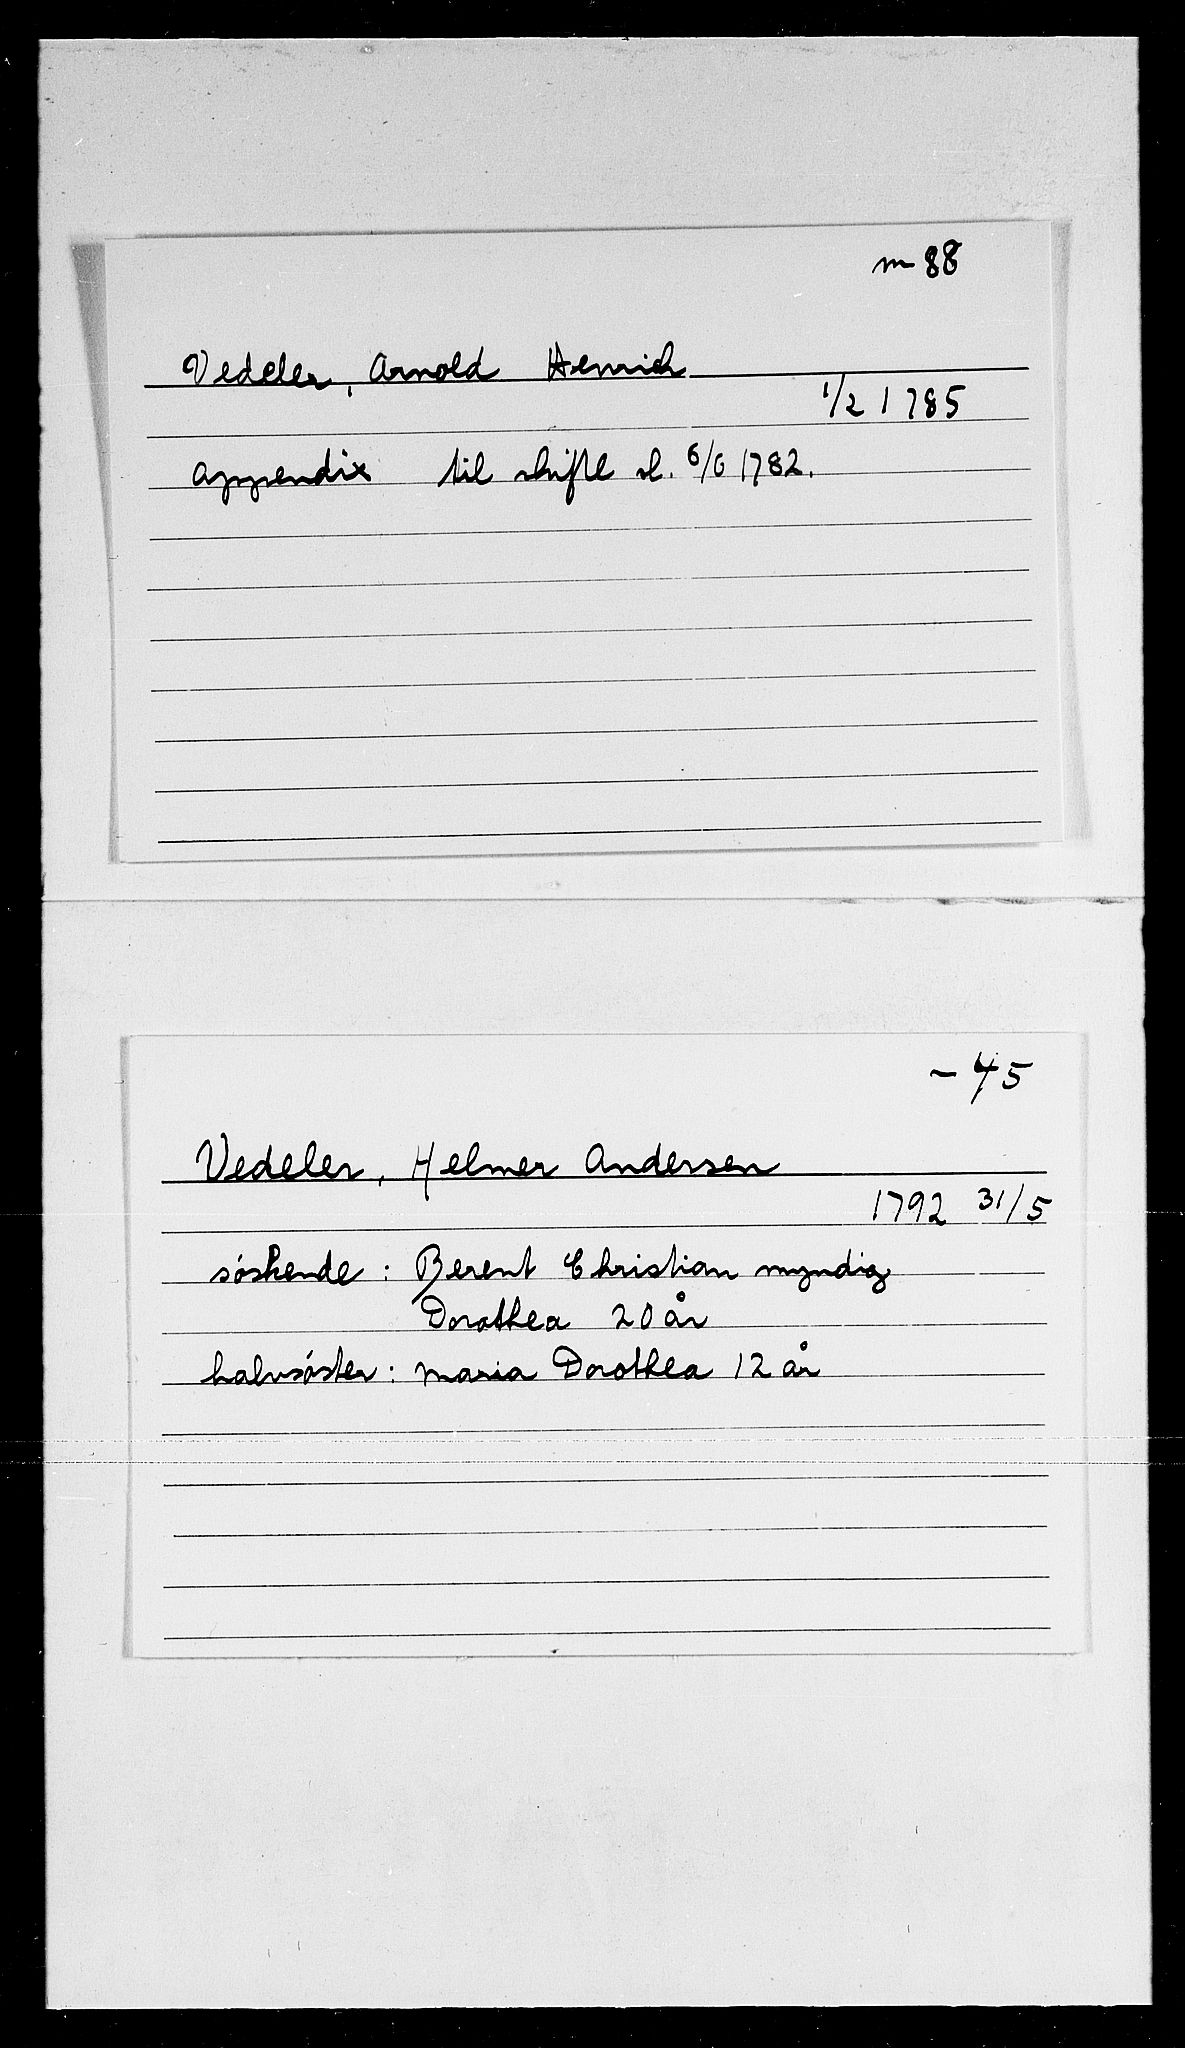 m 88
Vedeler, Arnold Henrich
1/2 1785
appendix til skifte sl. 6/6 1782.
- 45
Vedeler, Helmer Andersen
1792 31/5
søskende: Berent Christian myndig
Dorothea 20 år
halvsøster: Maria Dorothea 12 år